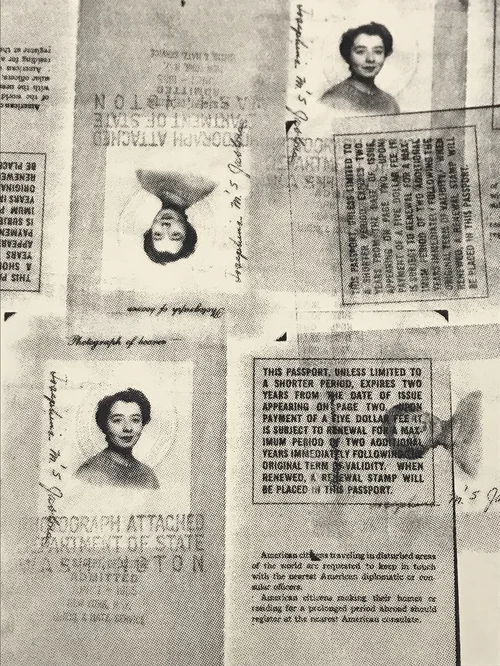 American
of the world
with the nea
sular officers.
American
residing for a
register at the
PHOTOGRAPH ATTACHED
DEPARTMENT OF STATE
WASHINGTON
ADMITTED
Josephine M'S
Josephine M'S
THIS PASSPORT, UNLESS LIMITED TO
A SHORTER PERIOD, EXPIRES TWO
YEARS FROM THE DATE OF ISSUE
APPEARING ON PAGE TWO. UPON
PAYMENT OF A FIVE DOLLAR FEE IT
IS SUBJECT TO RENEWAL FOR A MAX-
IMUM PERIOD OF TWO ADDITIONAL
YEARS IMMEDIATELY FOLLOWING THE
ORIGINAL TERM OF VALIDITY. WHEN
RENEWED, A RENEWAL STAMP WILL
BE PLACED IN THIS PASSPORT.
THIS PAS
A SHO
YEARS
APPEAR
PAYMEN
IS SUBJE
IMUM P
YEARS I
ORIGINA
RENEWE
BE PLAC
Photograph of bearer
Photograph of bearer
Josephine M'S
PHOTOGRAPH ATTACHED
DEPARTMENT OF STATE
WASHINGTON
ADMITTED
THIS PASSPORT, UNLESS LIMITED TO
A SHORTER PERIOD, EXPIRES TWO
YEARS FROM THE DATE OF ISSUE
APPEARING ON PAGE TWO. UPON
PAYMENT OF A FIVE DOLLAR FEE IT
IS SUBJECT TO RENEWAL FOR A MAX-
IMUM PERIOD OF TWO ADDITIONAL
YEARS IMMEDIATELY FOLLOWING THE
ORIGINAL TERM OF VALIDITY. WHEN
RENEWED, A RENEWAL STAMP WILL
BE PLACED IN THIS PASSPORT.
Josephine M'S
American citizens traveling in disturbed areas
of the world are requested to keep in touch
with the nearest American diplomatic or con-
sular officers.
American citizens making their homes or
residing for a prolonged period abroad should
register at the nearest American consulate.